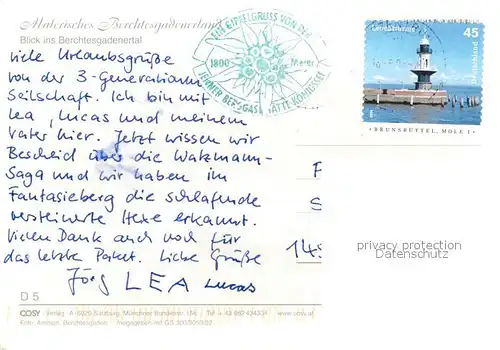 Malerisches Berchtesgadenerland
Blick ins Berchtesgadenertal
Viele Urlaubsgrüße
von der 3-Generationen
Seilschaft. Ich bin mit
Lea, Lucas und meinem
Vater hier. Jetzt wissen wir
Bescheid über die Watzmann-
Saga und wir haben im
Fantasieberg die schlafende
versteinerte Hexe erkannt.
Vielen Dank auch noch für
das letzte Paket. Liebe Grüße
Jörg LEA Lucas
EIN GIPFELGRUSS VON DER
1800 Meter
JENNER BERGGASTSTÄTTE KÖNIGSSEE
Leuchttürme
45
Deutschland
BRUNSBÜTTEL, MOLE 1
F
S
14
privacy protection
Datenschutz
D 5
COSY Verlag · A-5020 Salzburg, Münchner Bundesstr.
www.cosy.at
Foto: Ammon, Berchtesgaden · Freigegeben mit GS 300/9059/82